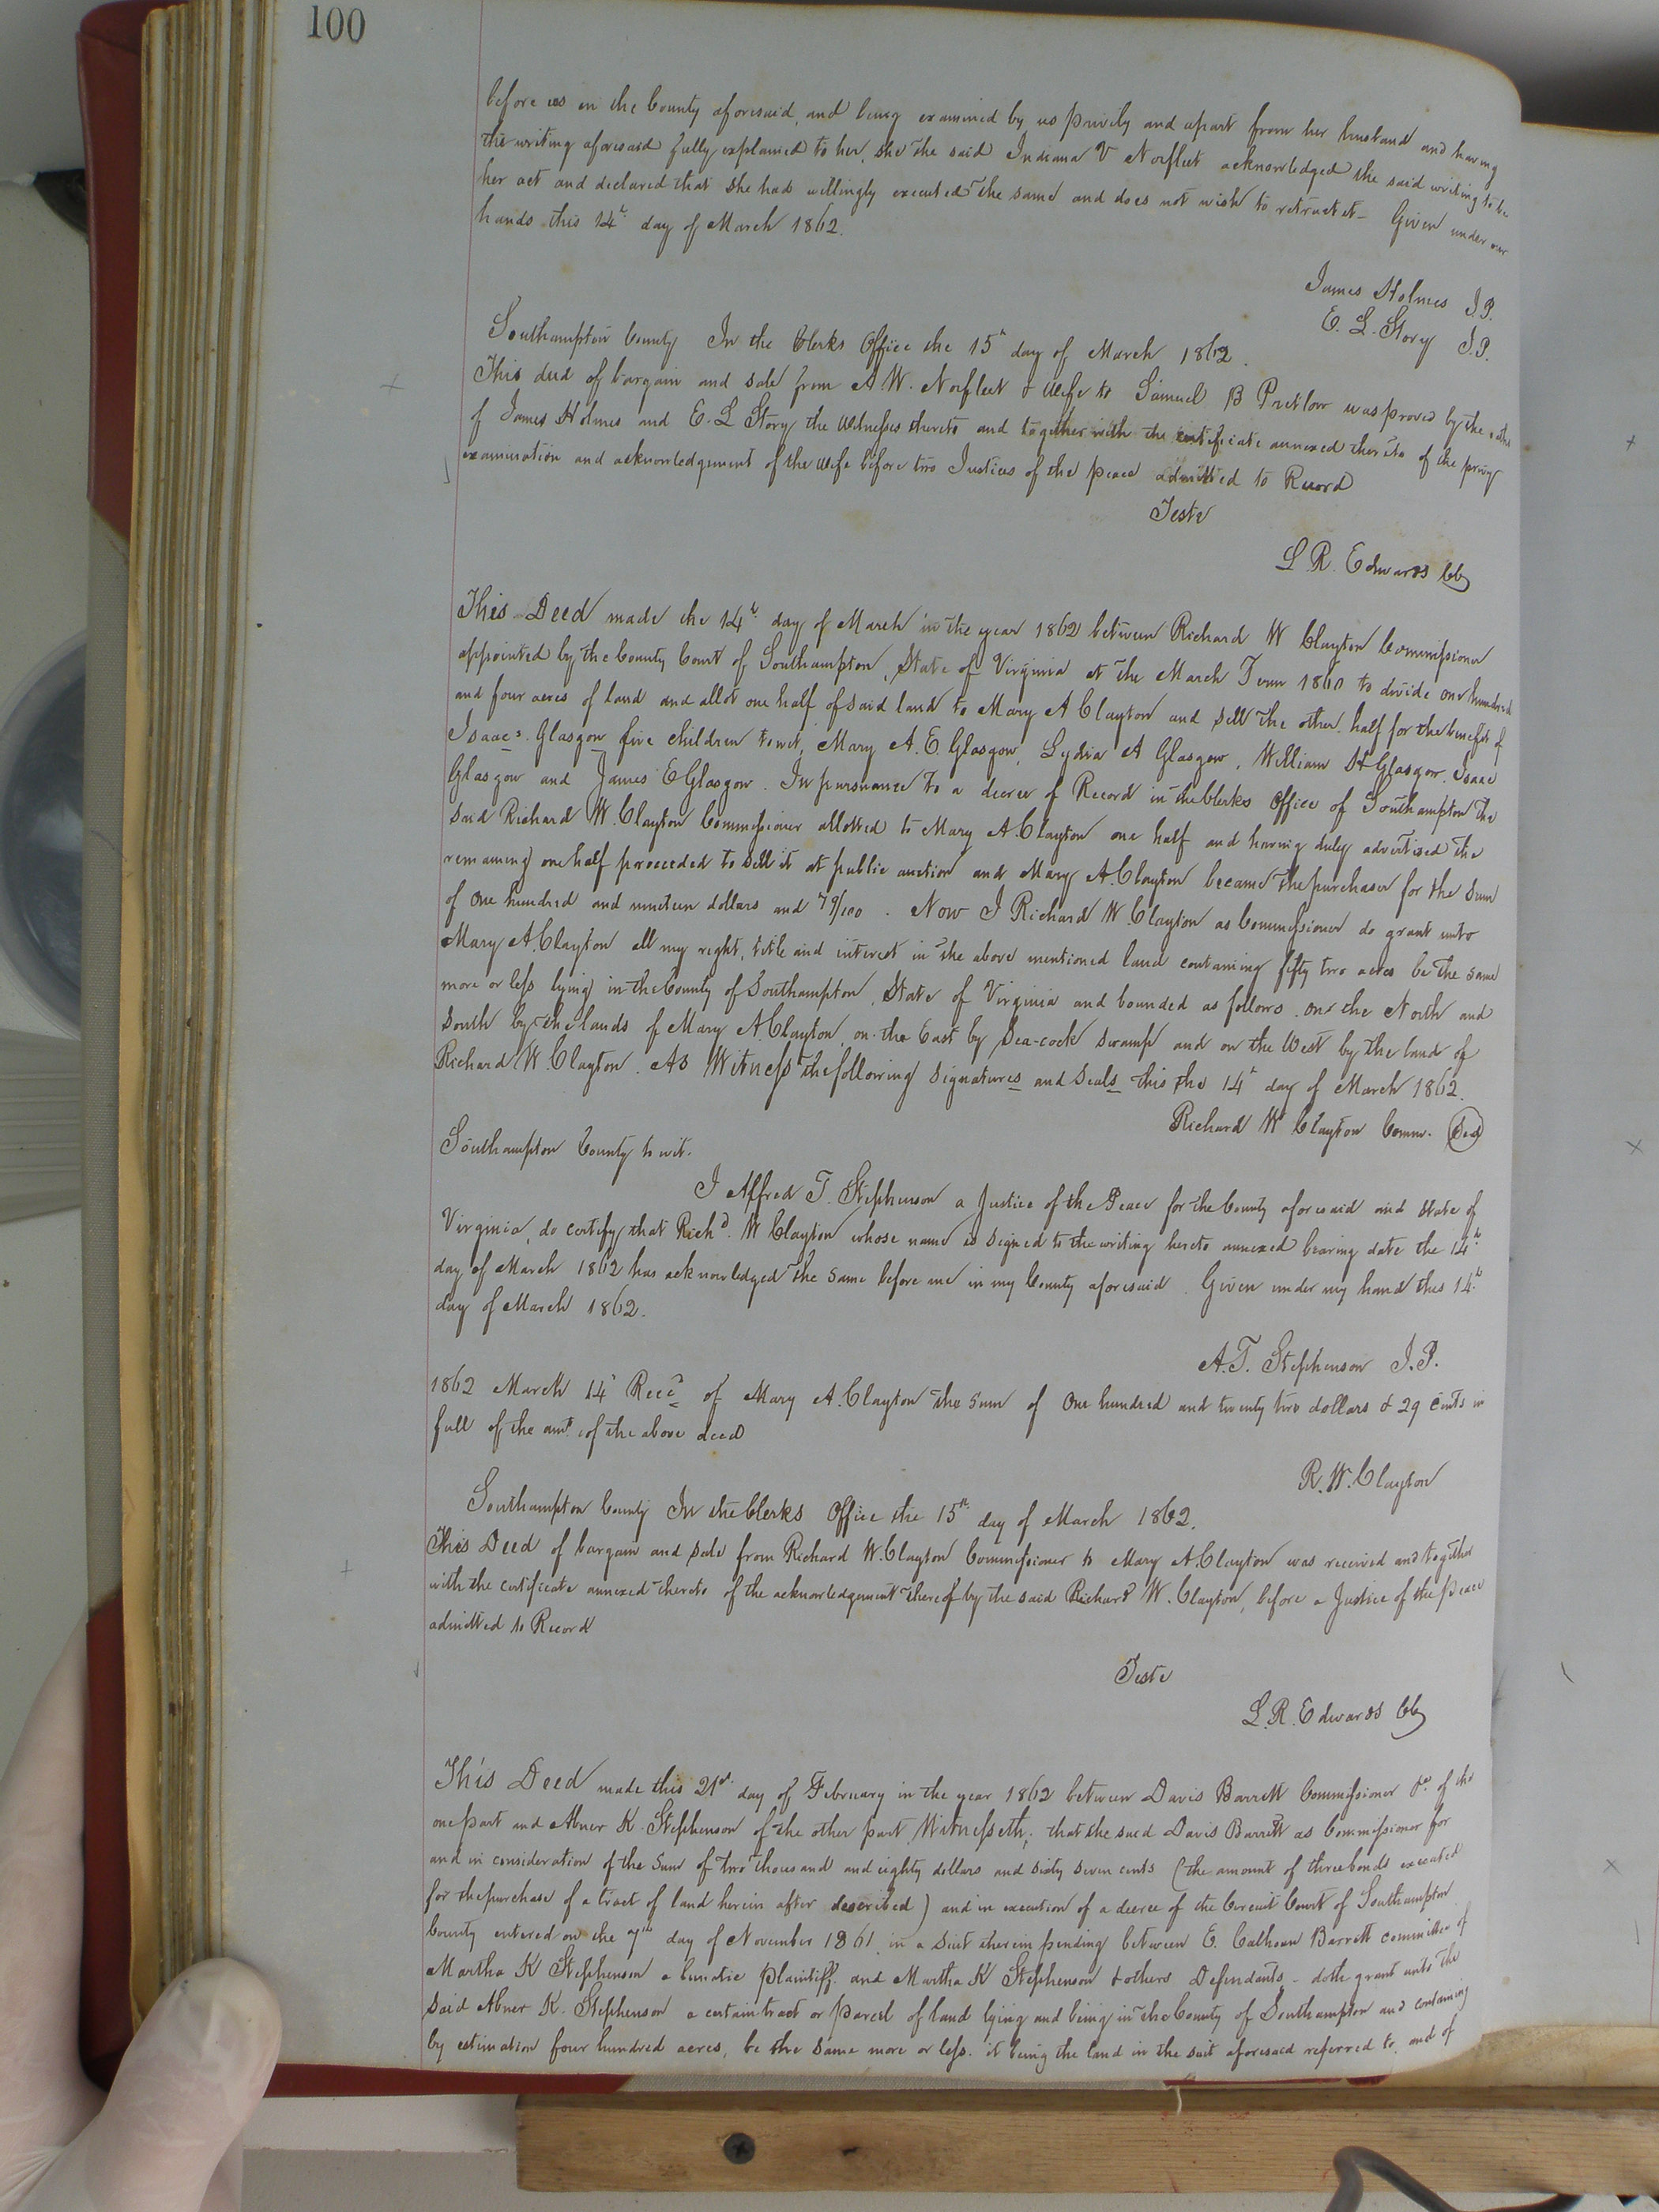 100
before us in the County aforesaid, and being examined by us privily and apart from her husband and having
the writing aforesaid fully explained to her, she the said Indiana V Norfleet acknowledged the said writing to be
her act and declared that she had willingly executed the same and does not wish to retract it - Given under our
hands this 14th day of March 1862.
James Holmes J.P.
E. L. Story J.P.
Southampton County In the Clerks Office the 15th day of March 1862.
This deed of bargain and sale from A W. Norfleet & Wife to Samuel B Pretlow was proved by the oaths
of James Holmes and E. L Story the Witnesses thereto and together with the certificate annexed thereto of the privy
examination and acknowledgement of the wife before two Justices of the peace admitted to Record
Teste
L R. Edwards CC
This Deed made the 14th day of March in the year 1862 between Richard W Clayton Commissioner
appointed by the County Court of Southampton, State of Virginia at the March Term 1860 to divide one hundred
and four acres of land and allot one half of said land to Mary A Clayton and sell the other half for the benefit of
Isaac s. Glasgow five children towit, Mary A. E. Glasgow, Lydia A Glasgow, William H Glasgow, Isaac
Glasgow and James E Glasgow. In pursuance to a decree of Record in the Clerks Office of Southampton the
said Richard W. Clayton Commissioner allotted to Mary A Clayton one half and having duly advertised the
remaining one half proceeded to sell it at public auction and Mary A. Clayton became the purchaser for the sum
of One hundred and nineteen dollars and 79/100. Now I Richard W. Clayton as Commissioner do grant unto
Mary A. Clayton all my right, title and interest in the above mentioned land containing fifty two acres be the same
more or less lying in the County of Southampton, State of Virginia and bounded as follows on the North and
South by the lands of Mary A. Clayton, on the East by Sea-cock swamp and on the West by the land of
Richard W. Clayton. As Witness the following signatures and seals this the 14th day of March 1862.
Richard W Clayton Comm. Seal
Southampton County to wit.
I Alfred T. Stephenson a Justice of the Peace for the County aforesaid and State of
Virginia, do certify that Richd. W Clayton whose name is signed to the writing hereto annexed bearing date the 14th
day of March 1862 has acknowledged the same before me in my County aforesaid. Given under my hand this 14th
day of March 1862.
A.T. Stephenson J.P.
1862 March 14th Recd of Mary A. Clayton the sum of One hundred and twenty two dollars & 29 cents in
full of the amt. of the above deed
R. W. Clayton
Southampton County In the Clerks Office the 15th day of March 1862.
This Deed of bargain and sale from Richard W. Clayton Commissioner to Mary A. Clayton was received and together
with the certificate annexed thereto of the acknowledgement thereof by the said Richard W. Clayton, before a Justice of the peace
admitted to Record
Teste
L. R. Edwards CC
This Deed made this 21st day of February in the year 1862 between Davis Barrett Commissioner &c of the
one part and Abner K. Stephenson of the other part Witnesseth; that the said Davis Barrett as Commissioner for
and in consideration of the sum of two thousand and eighty dollars and sixty seven cents (the amount of three bonds executed
for the purchase of a tract of land herein after described) and in execution of a decree of the Circuit Court of Southampton
County entered on the 7th day of November 1861 in a suit therein pending between E. Calhoun Barrett committee of
Martha K Stephenson a lunatic plaintiff and Martha K Stephenson & others Defendants - doth grant unto the
said Abner K. Stephenson a certain tract or parcel of land lying and being in the County of Southampton and containing
by estimation four hundred acres, be the same more or less. it being the land in the suit aforesaid referred to and of